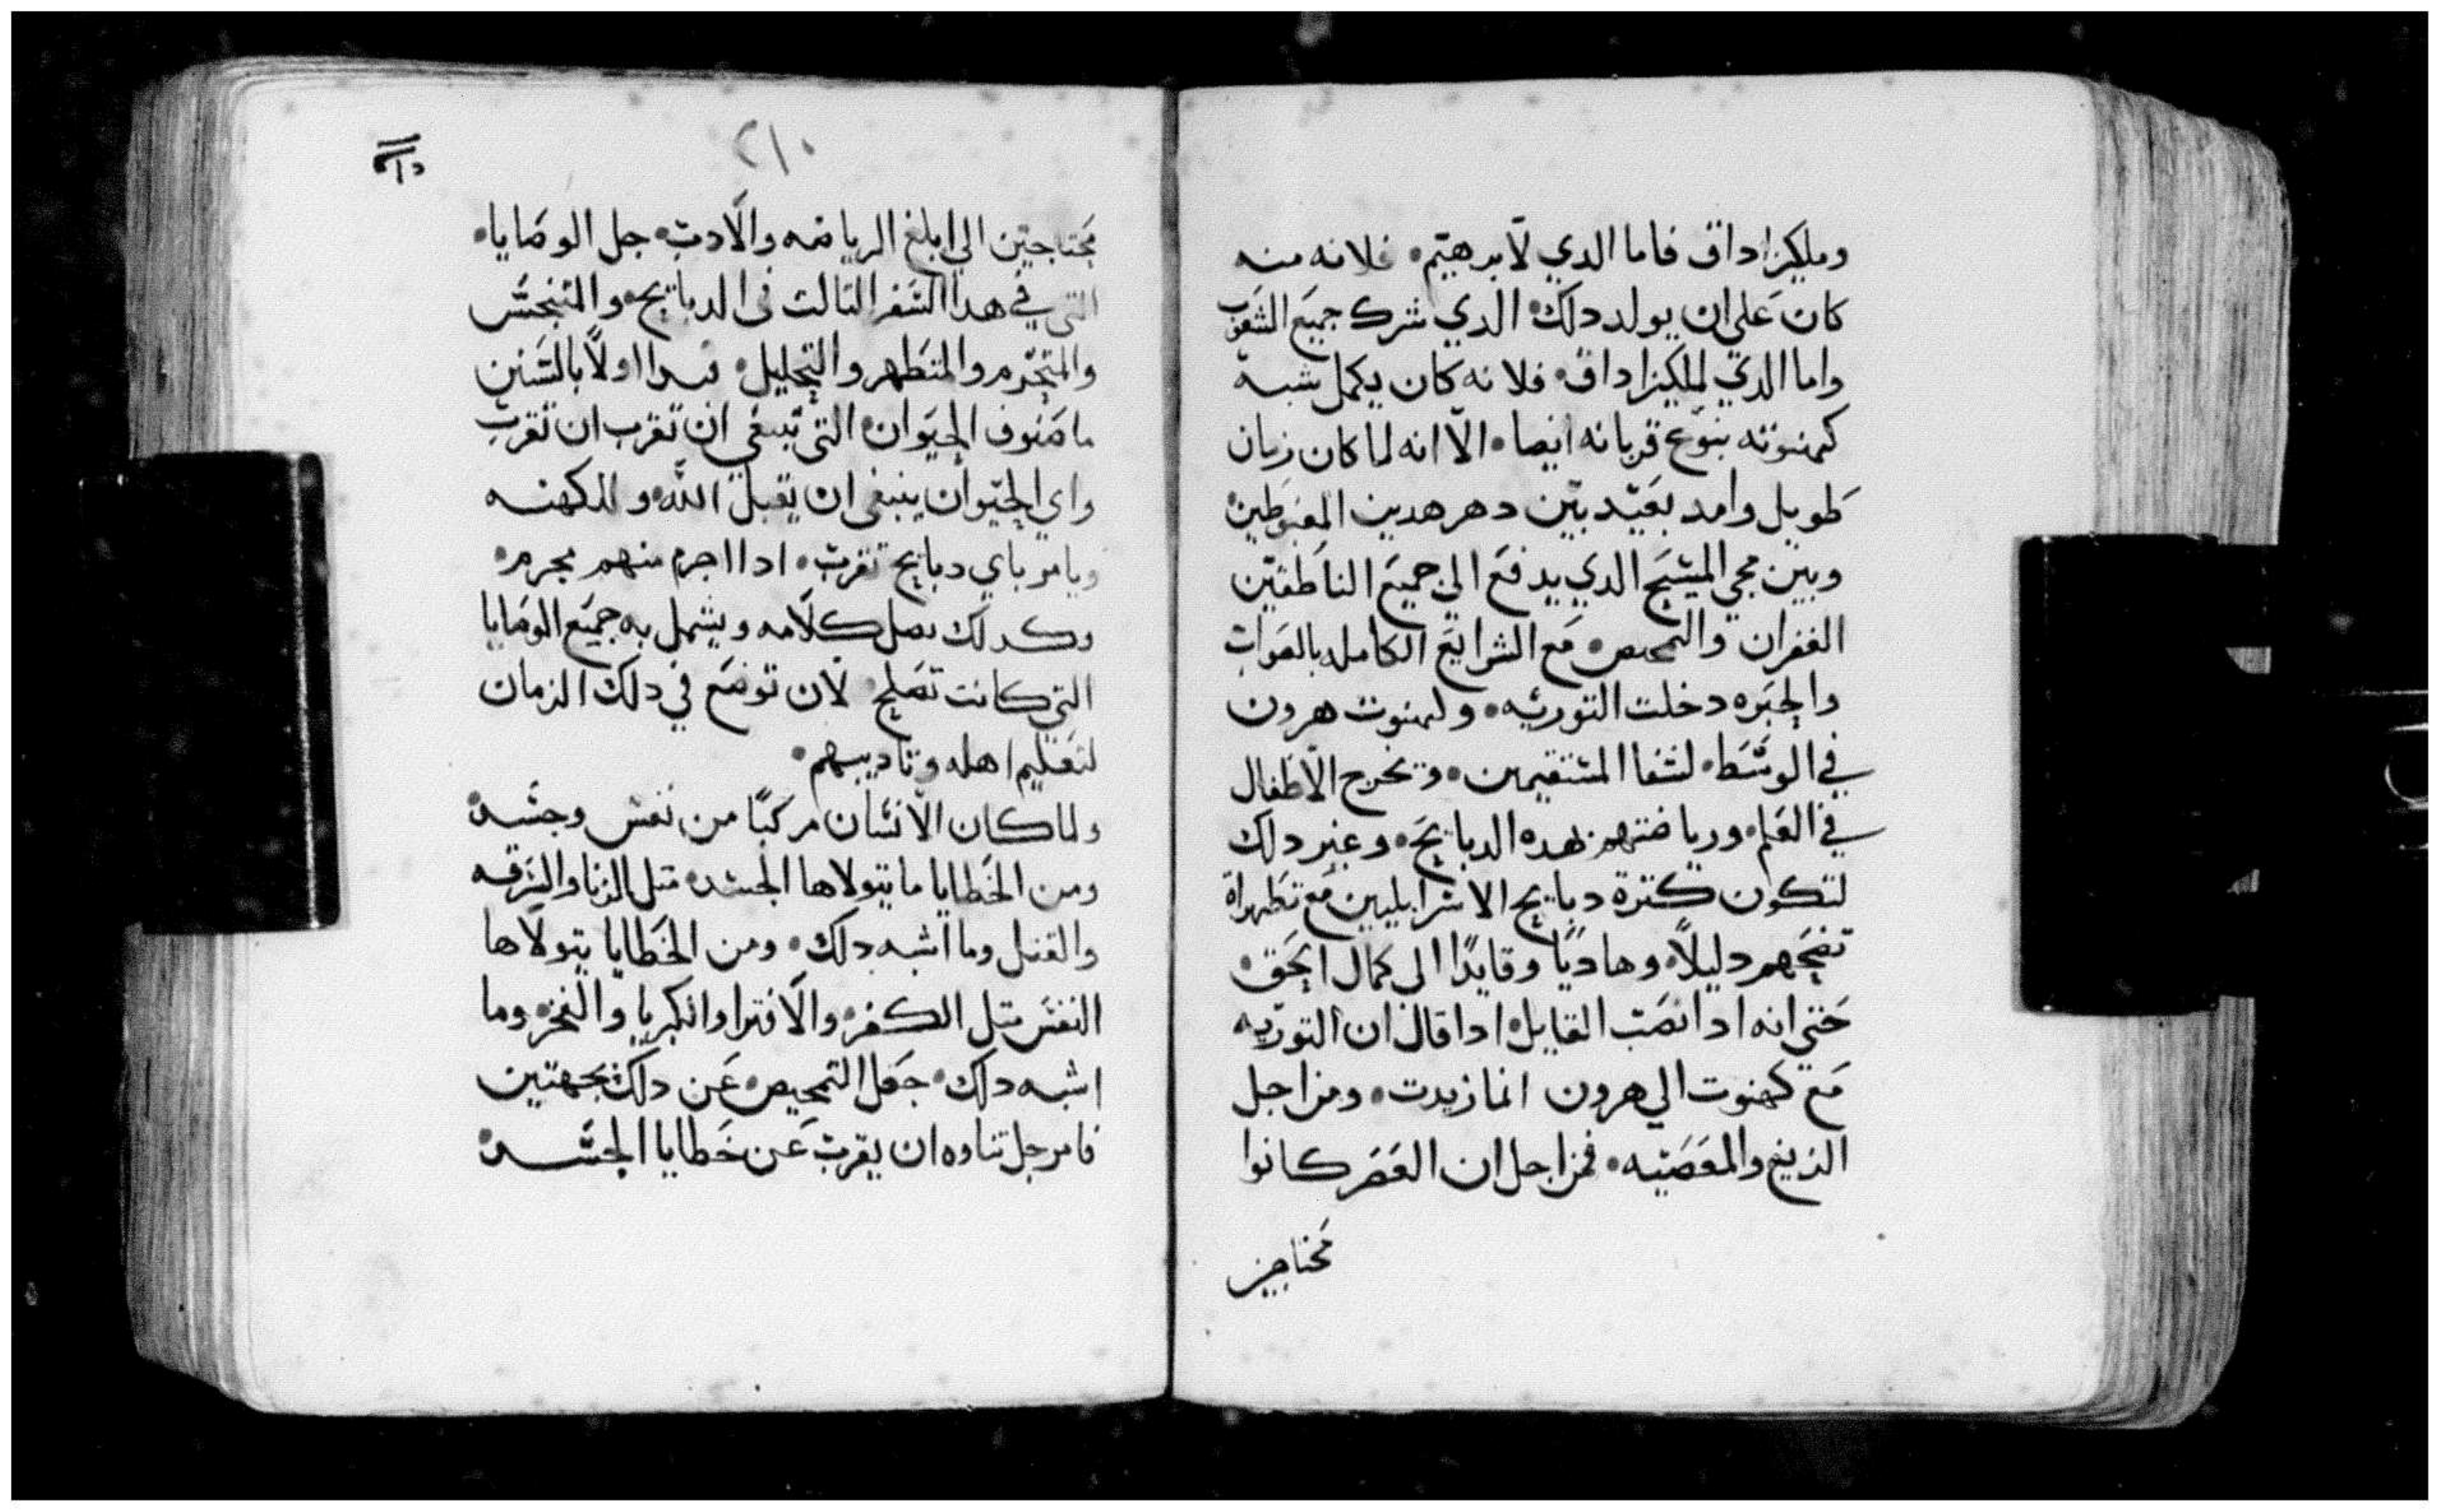 وملكيزاداق فاما الدي لابرهيم۰ فلانه منه
كان على ان يولد دلك الدي شرك جميع الشعوب
واما الدي لملكيزاداق۰ فلانه كان يكمل شبه
كهنوته بنوع قربانه ايضا۰ الا انه لما كان زمان
طويل وامد بعيد بين دهر هدين المغبوطين
وبين مجي المسيح الدي يدفع الى جميع الناطقين
الغفران والتمحيص۰ مع الشرايع الكامله بالصواب
والخبره دخلت التوريه۰ وكهنوت هرون
في الوسط۰ لشفا المستقيمين۰ وتخرج الاطفال
في العلم۰ ورياضتهم بهده الدبايح۰ وغير دلك
لتكون كترة دبايح الاسراييليين مع تطهراة
نضحهم دليلاً۰ وهاديًا وقايدًا الى كمال الحق۰
حتي انه ادا نصت القايل۰ ادا قال ان التوريه
مع كهنوت الي هرون انما زيدت۰ ومن اجل
الزيغ والمعصيه۰ فمن اجل ان العصر كانوا
محتاجين
٢١٠
محتاجين الي ابلغ الرياضه والادب۰ جل الوصايا۰
التي في هدا السفر التالت في الدبايح۰ والتنجس
والتحرم والتطهر والتحليل۰ فبدا اولاً بالسنن
ما صنوف الحيوان۰ التي تبتغي ان تقرب ان تقرب
واي الحيوان ينبغي ان يقبل الله۰ والكهنه
ويامر باي دبايح تقرب۰ ادا اجرم منهم مجرم۰
وكدلك يصل كلامه ويشمل به جميع الوصايا
التي كانت تصلح لان توضع في دلك الزمان
لتعليم اهله وتاديبهم۰
ولما كان الانسان مركبًا من نفس وجسد۰
ومن الخطايا ما يتولاها الجسد۰ متل الزنا والسرقه
والقتل وما اشبه دلك۰ ومن الخطايا يتولاها
النفس متل الكفر۰ والافترا والكبريا والفخر۰ وما
اشبه دلك۰ جعل التمحيص۰ عن دلك بجهتين
فامر جل تناوه ان يقرب عن خطايا الجسد۰